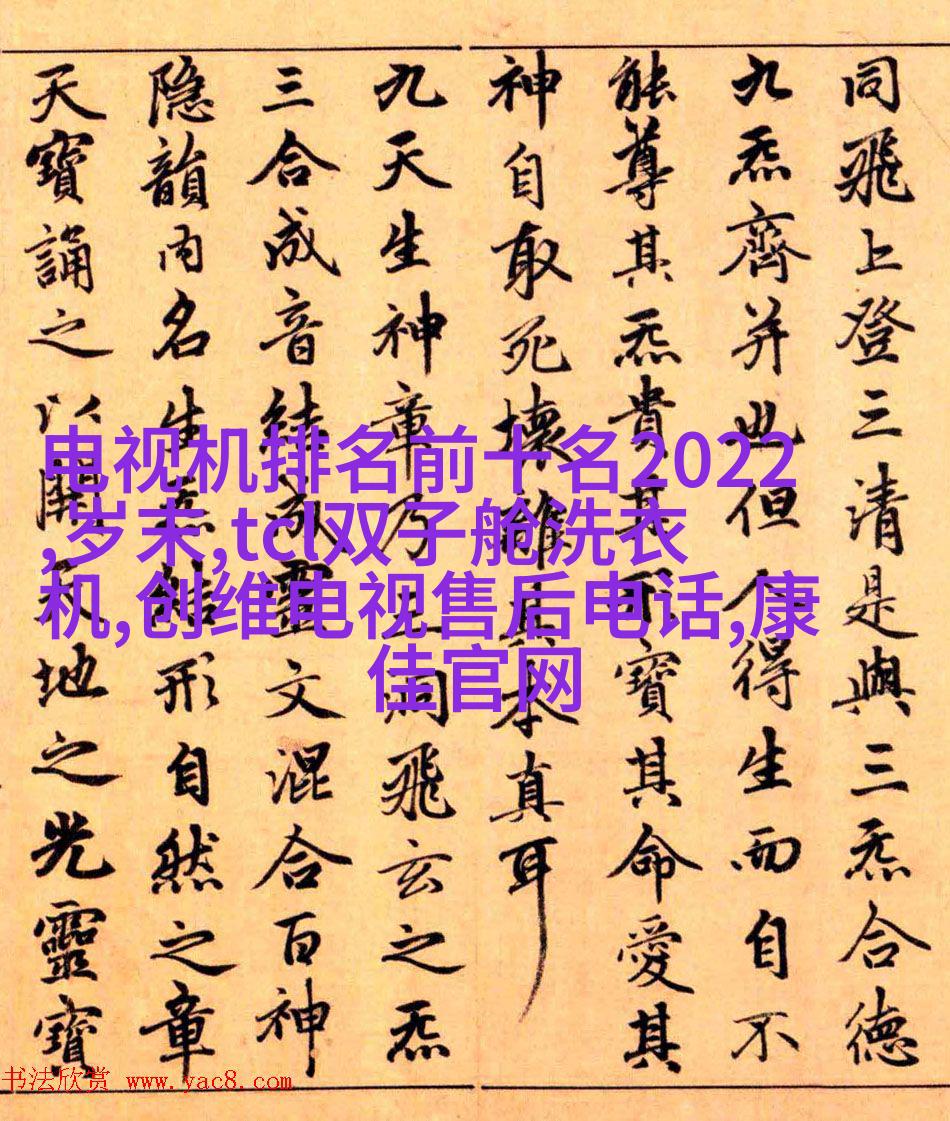 同飛上登三清是與三炁合德
九炁齊并也但人得生而自不
能尊其炁貴其形寶其命愛其
神自取死壞離其本真耳
九天生神章乃三洞飛玄之炁
三合成音結成靈文混合百神
隱韻内名生炁結形自然之章
天寶誦之以開天地之光靈寶
电视机排名前十名2022
,岁末,tcl双子舱洗衣
机,创维电视售后电话,康
佳官网
书法欣赏 www.yac8.com